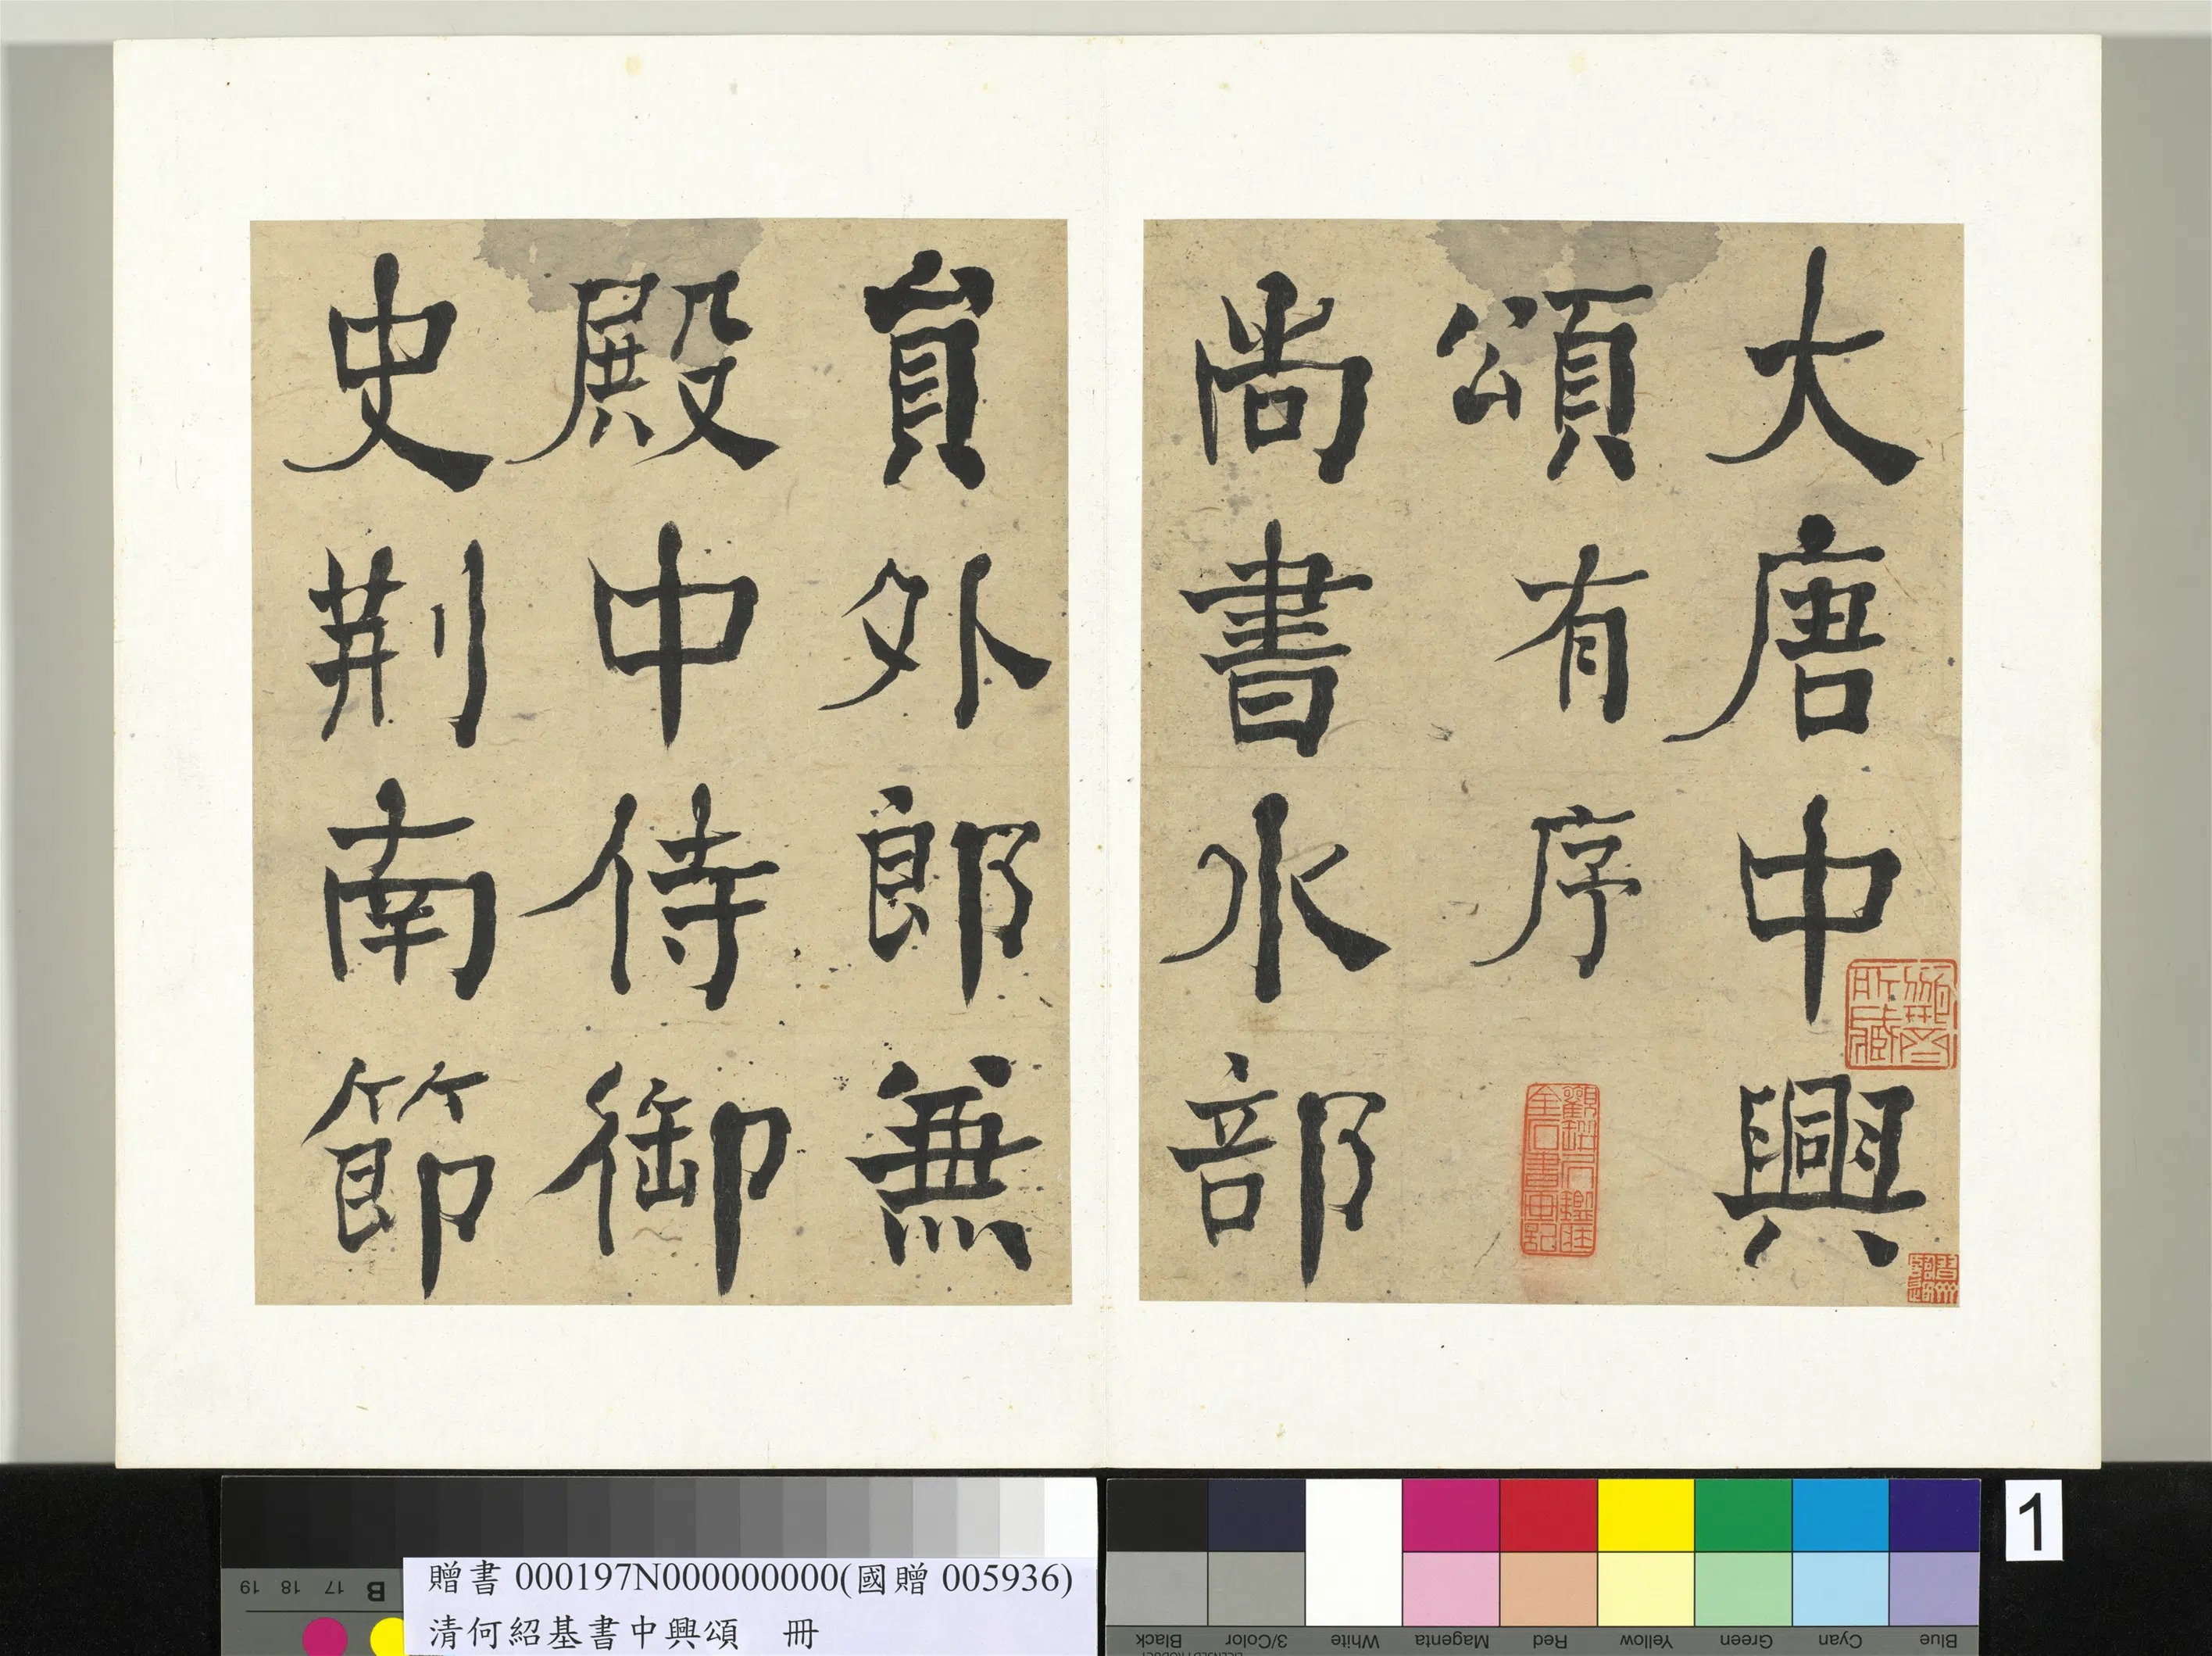 大唐中興
頌有序
尚書水部
員外郎兼
殿中侍御
史荆南節
所藏
金石書畫記
贈書 000197N000000000(國贈 005936)
清何紹基書中興頌 冊
19 18 17 B
Black 3/Color White Magenta Red Yellow Green Cyan Blue
1